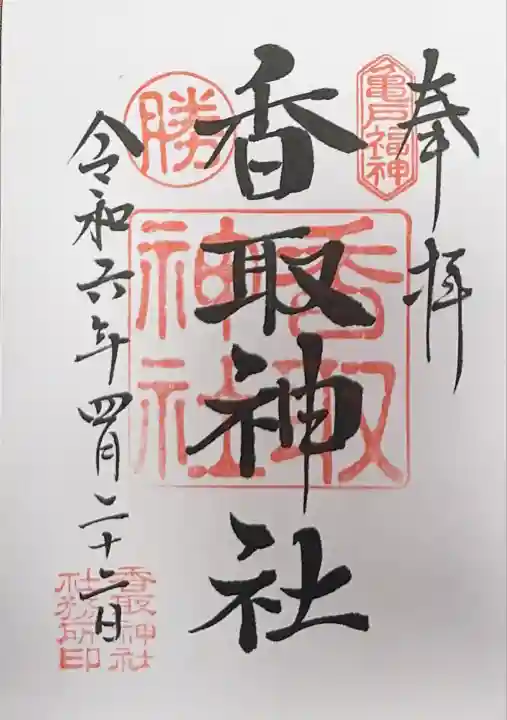 奉拝
亀戸福神
香取神社
香取神社
勝
令和六年四月二十六日
香取神社
社務所印